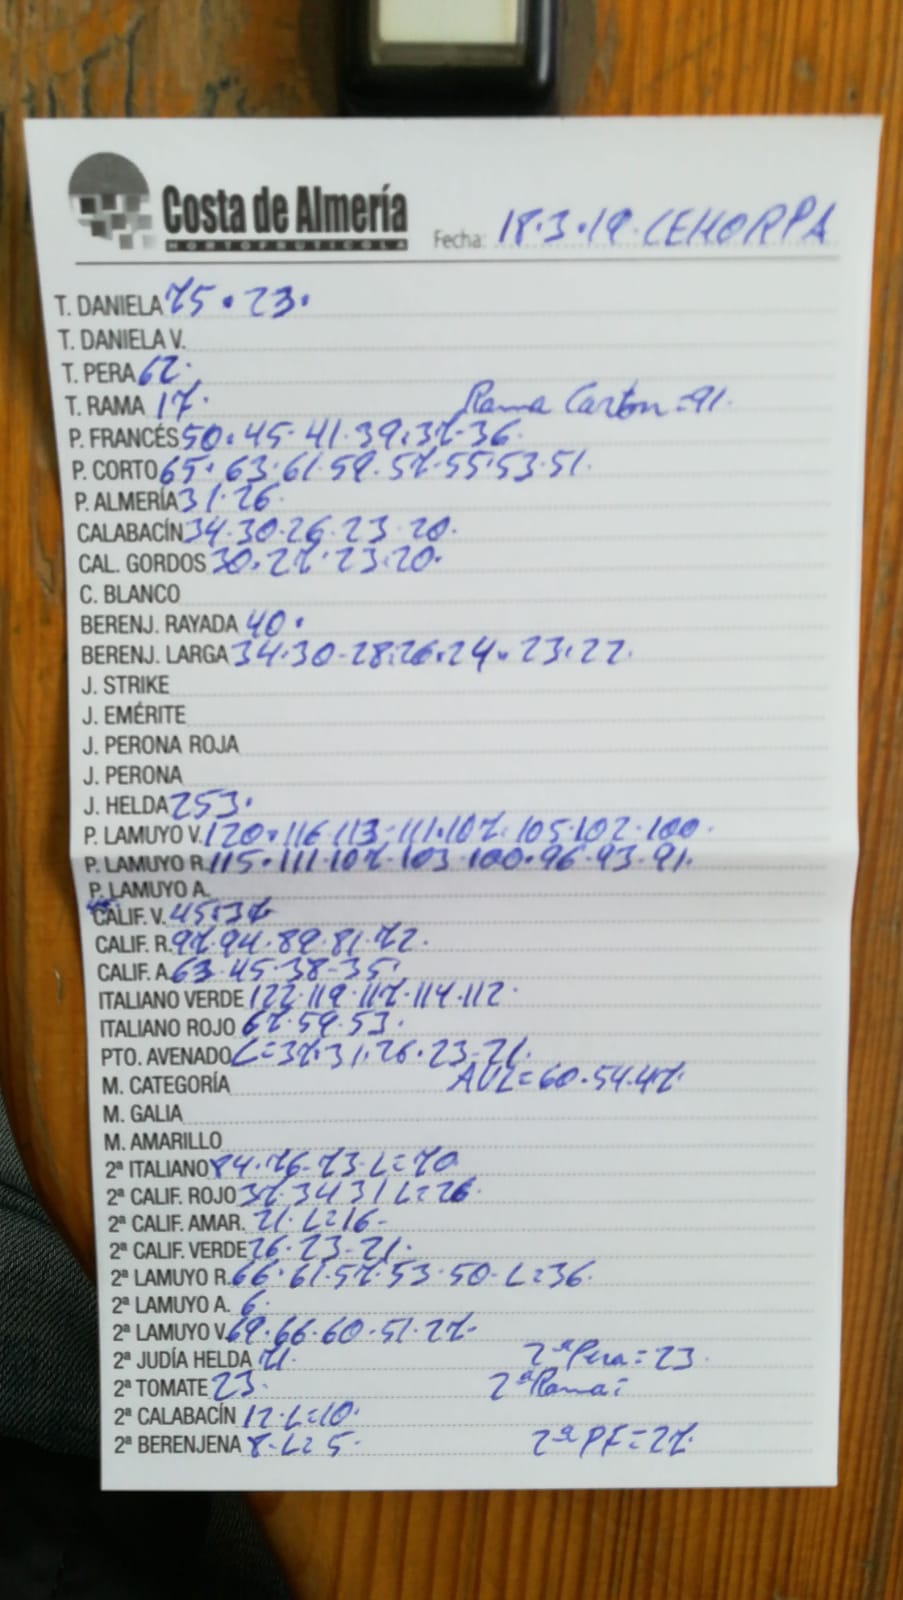 Costa de Almería
HORTOFRUTICOLA
Fecha: 18.3.19. CEHORPA
T. DANIELA 75.23.
T. DANIELA V.
T. PERA 62.
T. RAMA 17. Rama Carton=91.
P. FRANCÉS 50.45.41.39.37.36.
P. CORTO 65.63.61.59.57.55.53.51.
P. ALMERÍA 31.26.
CALABACÍN 34.30.26.23.20.
CAL. GORDOS 30.27.23.20.
C. BLANCO
BERENJ. RAYADA 40.
BERENJ. LARGA 34.30.28.26.24.23.22.
J. STRIKE
J. EMÉRITE
J. PERONA ROJA
J. PERONA
J. HELDA 253.
P. LAMUYO V. 120.116.113.111.107.105.102.100.
P. LAMUYO R. 115.111.107.103.100.96.93.91.
P. LAMUYO A.
CALIF. V. 45.37
CALIF. R. 97.94.89.81.72.
CALIF. A. 63.45.38.35.
ITALIANO VERDE 122.119.117.114.112.
ITALIANO ROJO 67.59.53.
PTO. AVENADO L=37.31.26.23.21.
M. CATEGORÍA AVL=60.54.47.
M. GALIA
M. AMARILLO
2ª ITALIANO 84.76.73.L=70
2ª CALIF. ROJO 37.34.31 L=26.
2ª CALIF. AMAR. 21. L=16-
2ª CALIF. VERDE 26.23.21.
2ª LAMUYO R. 66.61.57.53.50-L=36.
2ª LAMUYO A. 6.
2ª LAMUYO V. 69.66.60.51.27.
2ª JUDÍA HELDA 71. 2ª Pera=23.
2ª TOMATE 23. 2ª Rama=
2ª CALABACÍN 12.L=10.
2ª BERENJENA 8-L=5. 2ª PF=27.